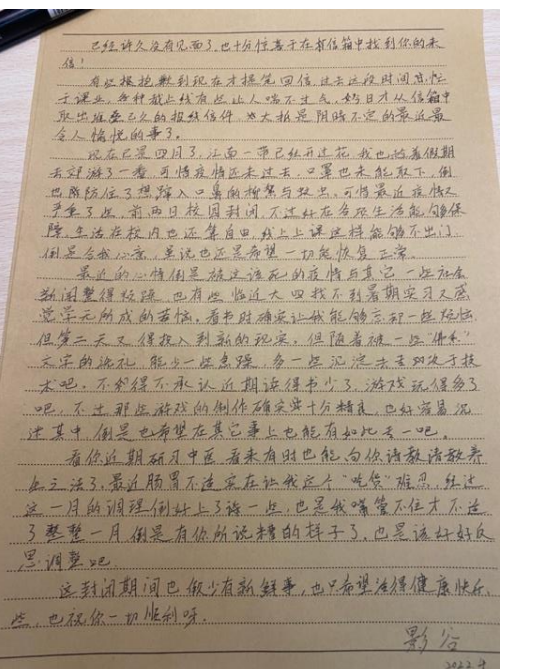 已经许久没有见面了，也十分惊喜于在信箱中找到你的来
信！
有些很抱歉到现在才提笔回信，过去这段时间忙
于课业，各种截止线有些让人喘不过气，好日才从信箱中
取出堆叠已久的报线信件，大抵是阴晴不定的最近最
令人愉悦的事了。
现在已是四月了，江南一带已经开过花，我也趁着假期
去郊游了一番，可惜疫情还未过去，口罩也未能取下，倒
也能防住了想蹿入口鼻的柳絮与，可惜最近疫情又
严重了些，前两日校园封闭，不过好在各项生活能够保
障，生活在校内也还算自由，线上上课这样能够不出门
倒是合我心意，虽说也还是希望一切能恢复正常。
最近的心情倒是被这该死的疫情与其它一些社会
新闻整得烦躁，也有些临近大四找不到暑期实习又感
觉学无所成的苦恼，看书时确实让我能够忘却一些烦恼
但第二天又得投入到新的现实，但随着被一些“佛系”
文字的洗礼，能少一些急躁，多一些沉淀去
吧，不得不承认近期读得书少了，游戏玩得多了
吧，不过那些游戏的制作确实十分精良，也好容易沉
迷其中，倒是也希望在其它事上也能有如此专一吧。
看你近期研习中医，看来有时也能向你请教请教养
生之法了，最近肠胃不适实在让我这个“吃货”难忍，经过
这一月的调理倒好上了许一些，也是我嘴管不住才不适
了整整一月，倒是有你所说糟的样子了，也是该好好反
思调整吧
这封闭期间也很少有新鲜事，也只希望活得健康快乐
些，也祝你一切顺利呀。
影谷